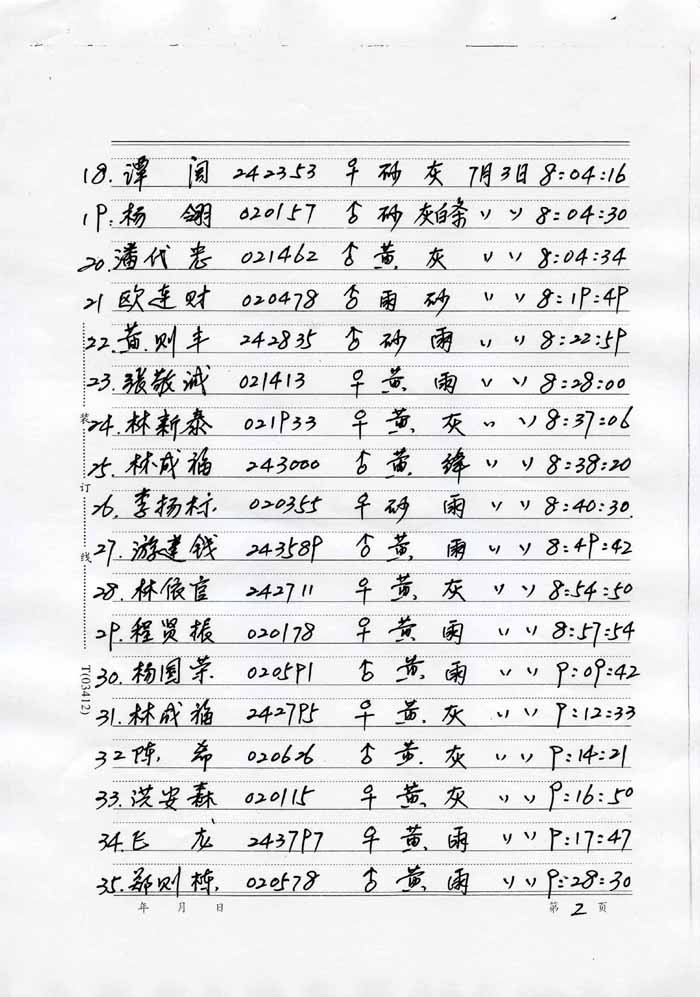 18. 谭 闰 242353 ♀ 砂 灰 7月3日 8:04:16
19. 杨 翎 020157 ♂ 砂 灰白条 〃 〃 8:04:30
20. 潘代忠 021462 ♂ 黄 灰 〃 〃 8:04:34
21 欧连财 020478 ♂ 雨 砂 〃 〃 8:19:49
22. 黄则丰 242835 ♂ 砂 雨 〃 〃 8:22:59
23. 张敬诚 021413 ♀ 黄 雨 〃 〃 8:28:00
24. 林新泰 021933 ♀ 黄 灰 〃 〃 8:37:06
25. 林成福 243000 ♂ 黄 绛 〃 〃 8:38:20
26. 李扬标 020355 ♀ 砂 雨 〃 〃 8:40:30
27. 游建钱 243589 ♂ 黄 雨 〃 〃 8:49:42
28. 林依官 242711 ♀ 黄 灰 〃 〃 8:54:50
29. 程贤振 020178 ♀ 黄 雨 〃 〃 8:57:54
30. 杨国荣 020591 ♂ 黄 雨 〃 〃 9:09:42
31. 林成福 242795 ♀ 黄 灰 〃 〃 9:12:33
32 陈 希 020626 ♂ 黄 灰 〃 〃 9:14:21
33. 洪安森 020115 ♀ 黄 灰 〃 〃 9:16:50
34. 飞 龙 243797 ♀ 黄 雨 〃 〃 9:17:47
35. 郑则栋 020578 ♂ 黄 雨 〃 〃 9:28:30
装订线
T(03412)
年 月 日 第 2 页